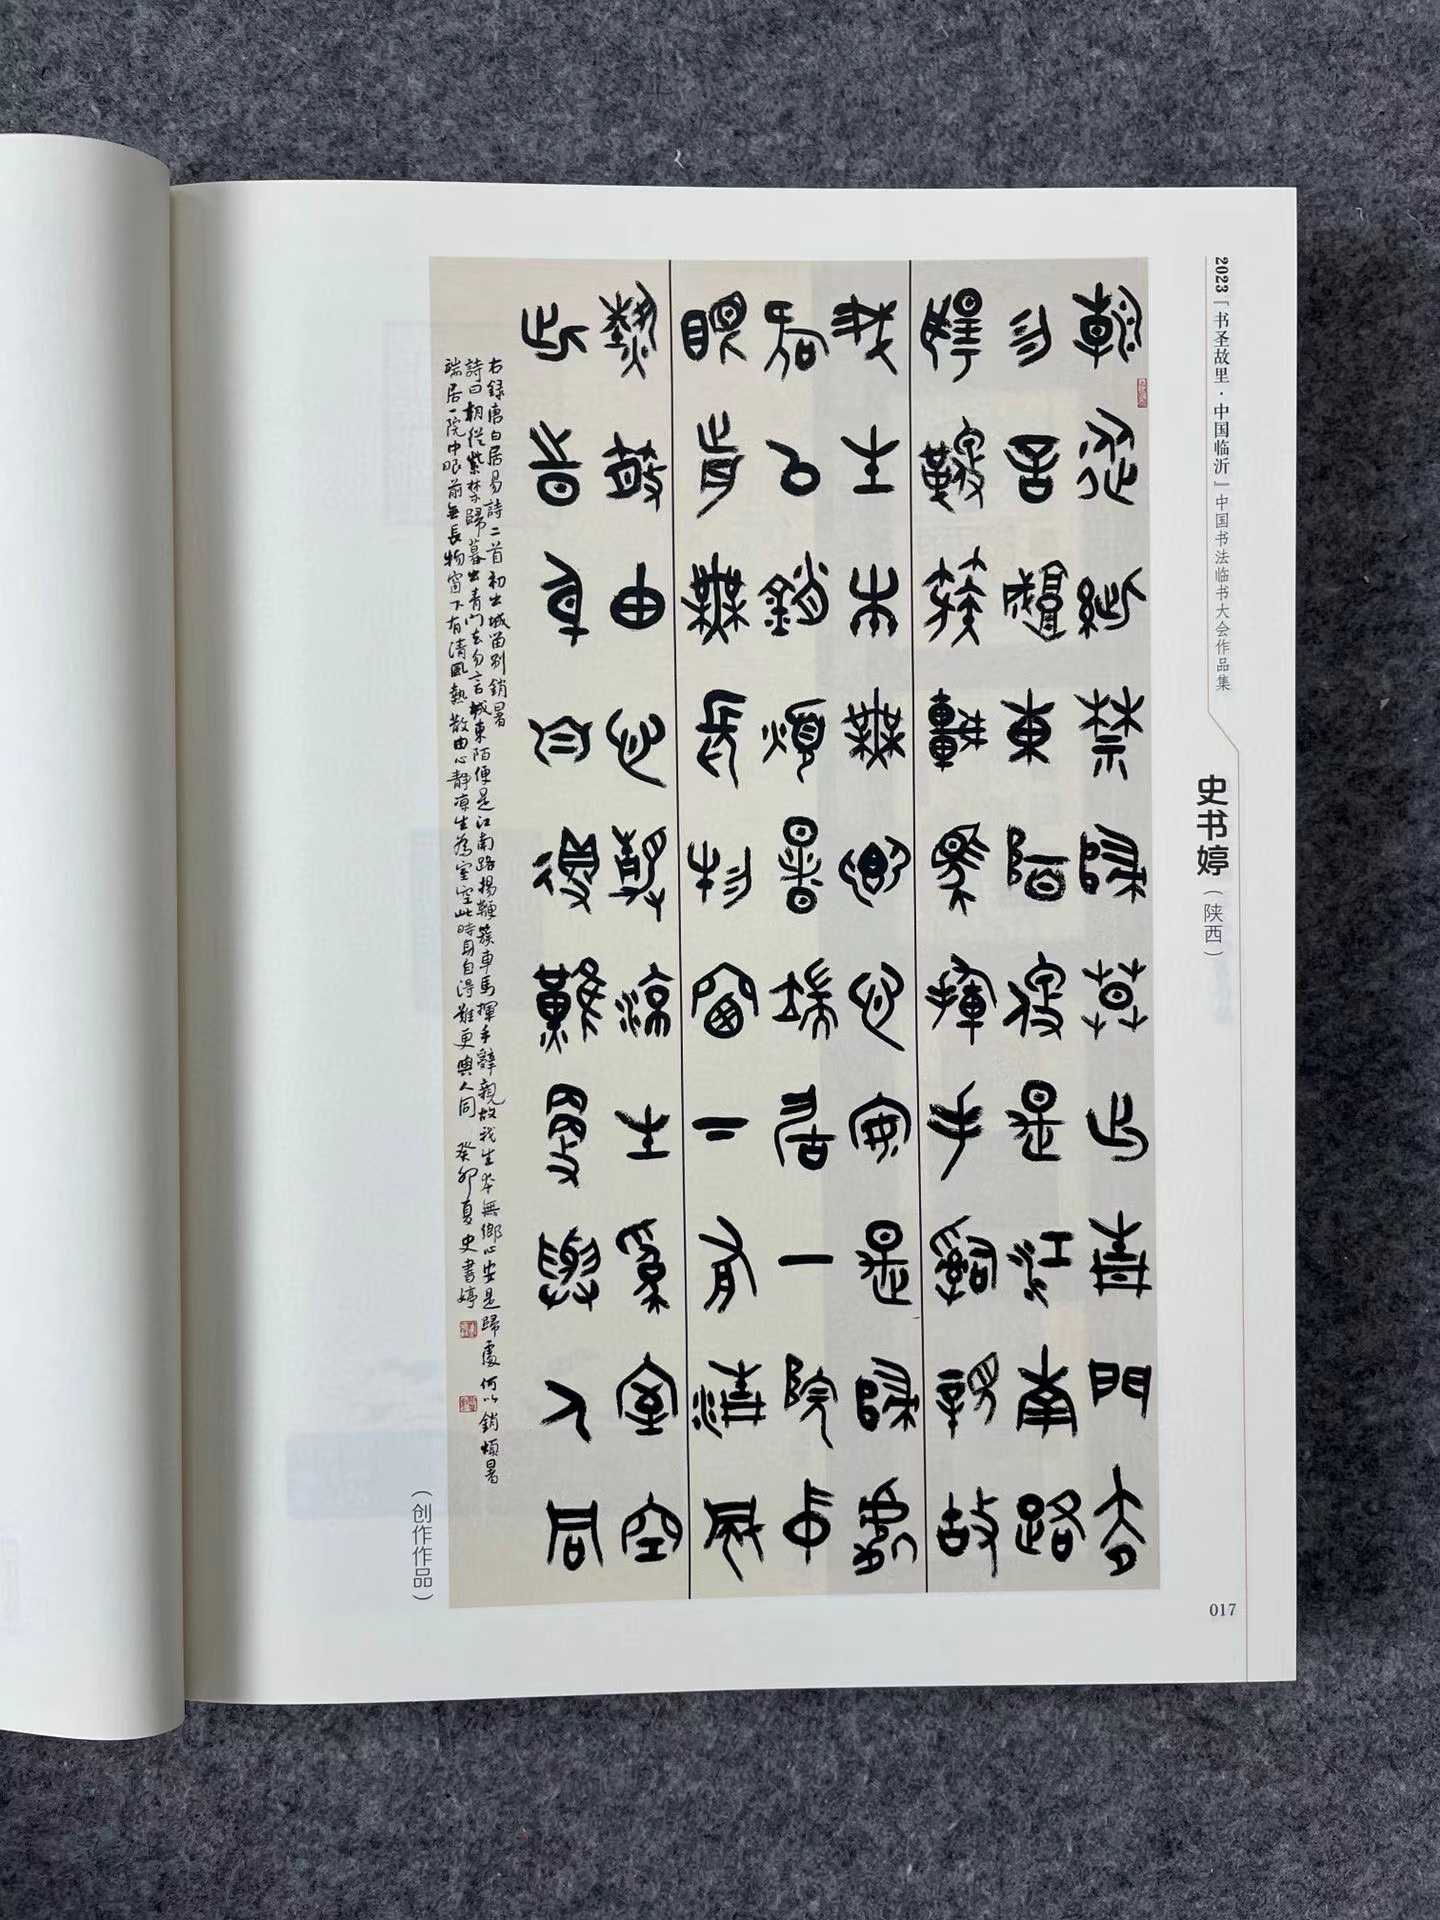 2023「书圣故里·中国临沂」中国书法临书大会作品集
史书婷（陕西）
朝從紫禁歸暮出青門去
勿言城東陌便是江南路
揚鞭簇車馬揮手辭親故
我生本無鄉心安是歸處
何以銷煩暑端居一院中
眼前無長物窗下有清風
熱散由心靜涼生為室空
此時身自得難更與人同
右録唐白居易詩二首初出城留别銷暑
詩曰朝從紫禁歸暮出青门去勿言城東陌便是江南路揚鞭簇車馬揮手辭親故我生本無鄉心安是歸處何以銷煩暑
端居一院中眼前無長物窗下有清風熱散由心靜凉生為室空此時身自得難更與人同 癸卯夏史書婷
（创作作品）
017